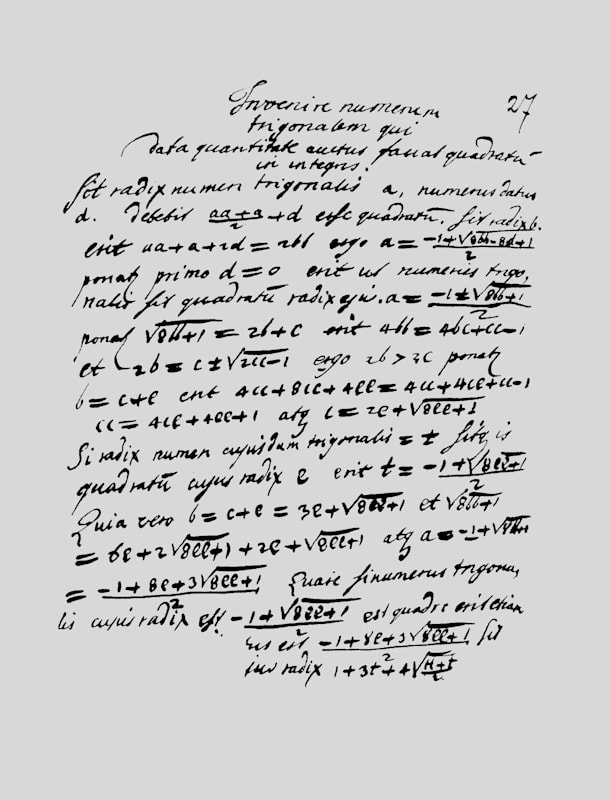 Invenire numerum 27
trigonalem qui
data quantitate auctus faciat quadratū
in integris.
Sit radix numeri trigonalis a, numerus datus
d. debebit \frac{aa+a}{2}+d esse quadratū. Sit radix b.
erit aa+a+2d=2bb ergo a=\frac{-1+\sqrt{8bb-8d+1}}{2}
ponat primo d=0 erit ut numerus trigo,
nalis sit quadratū radix ejus. a=\frac{-1±\sqrt{8bb+1}}{2}
ponat \sqrt{8bb+1}=2b+c erit 4bb=4bc+cc-1
et 2b=c±\sqrt{2cc-1} ergo 2b>2c ponat
b=c+e erit 4cc+8ce+4ee=4cc+4ce+cc-1
cc=4ce+4ee+1 atq c=2e+\sqrt{8ee+1}
Si radix numeri cujusdam trigonalis=t sitq is
quadratū cujus radix e erit t=\frac{-1+\sqrt{8ee+1}}{2}
Quia vero b=c+e=3e+\sqrt{8ee+1} et \sqrt{8bb+1}
=6e+2\sqrt{8ee+1}+2e+\sqrt{8ee+1} atq a=-1+\sqrt{8bb+1}
=\frac{-1+8e+3\sqrt{8ee+1}}{2} Quare si numerus trigona,
lis cujus radix est \frac{-1+\sqrt{8ee+1}}{2} est quadr: erit etiam
est \frac{-1+8e+3\sqrt{8ee+1}}{2} sit
radix 1+3t+4\sqrt{\frac{tt+t}{2}}